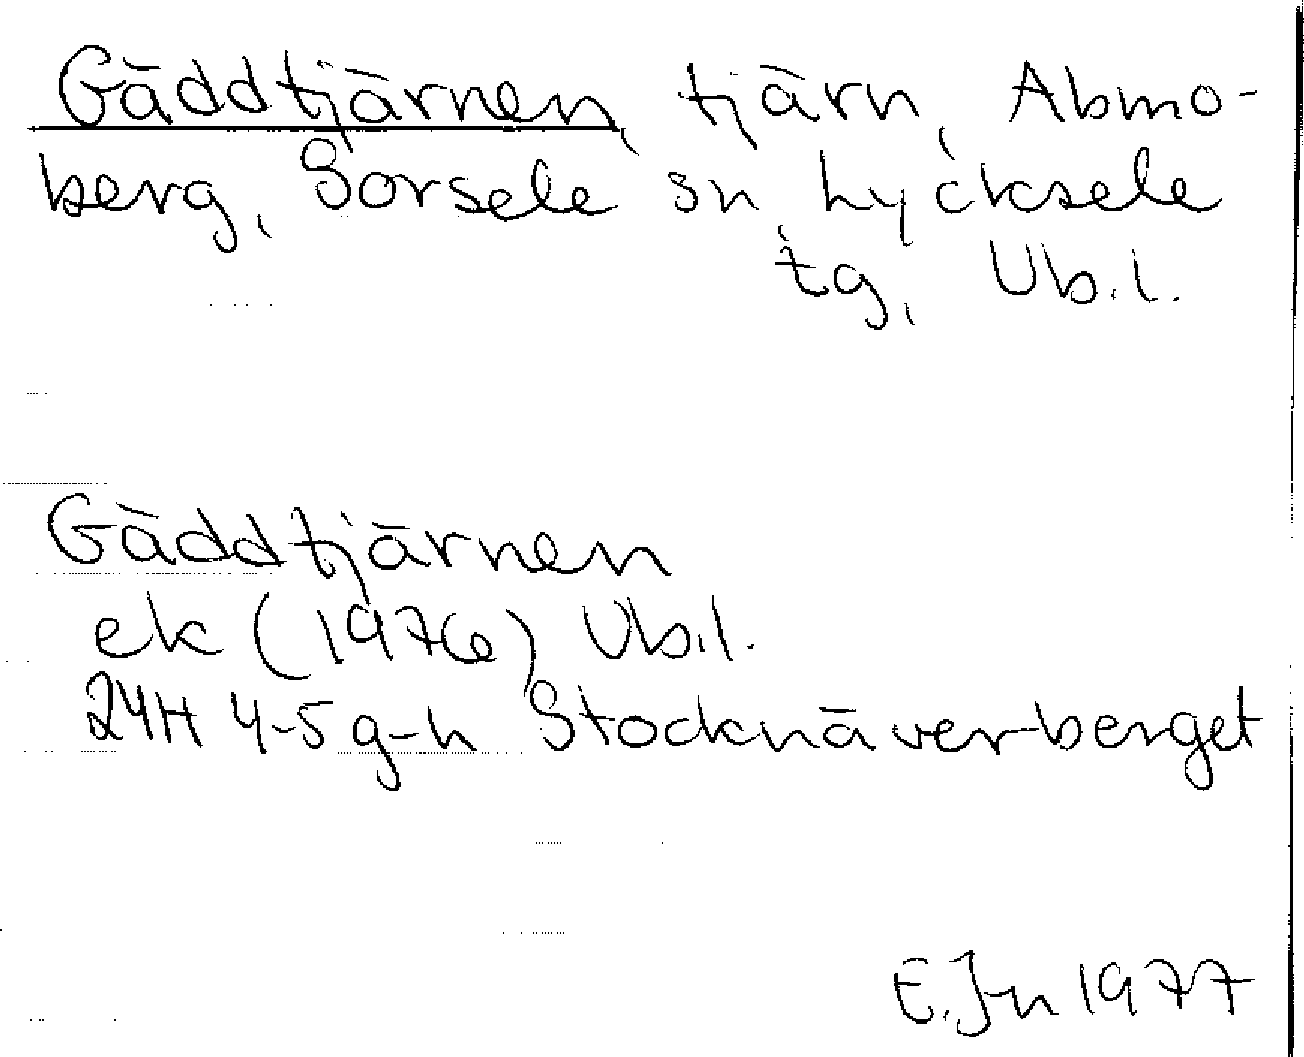 Gäddtjärnen, tjärn, Abmo-
berg, Sorsele sn, Lycksele
tg, Vb.l.
Gäddtjärnen
ek (1976) Vb.l.
24H 4-5 g-h Stocknäverberget
E. Jn 1977